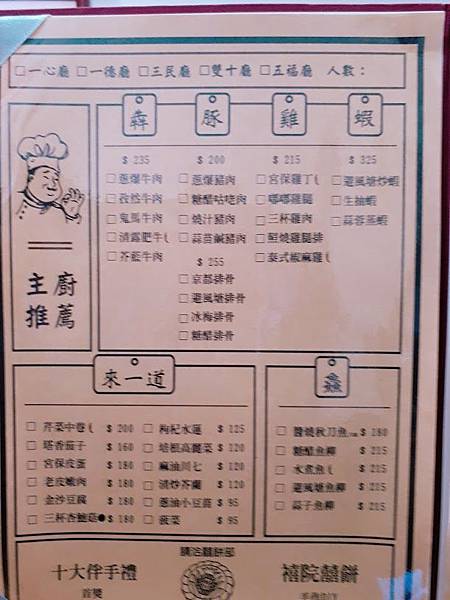 □一心廳 □一德廳 □三民廳 □雙十廳 □五福廳 人數：
主廚
推薦
犇
$ 235
□蔥爆牛肉
□孜然牛肉
□鬼馬牛肉
□清露肥牛
□芥藍牛肉
豚
$ 200
□蔥爆豬肉
□糖醋咕咾肉
□燒汁豬肉
□蒜苗鹹豬肉
$ 255
□京都排骨
□避風塘排骨
□冰梅排骨
□糖醋排骨
雞
$ 215
□宮保雞丁
□嘟嘟雞腿
□三杯雞肉
□照燒雞腿排
□泰式椒麻雞
蝦
$ 325
□避風塘炒蝦
□生抽蝦
□蒜蓉蒸蝦
來一道
□ 芹菜中卷 $ 200
□ 塔香茄子 $ 160
□ 宮保皮蛋 $ 180
□ 老皮嫩肉 $ 180
□ 金沙豆腐 $ 180
□ 三杯杏鮑菇● $ 180
□ 枸杞水蓮 $ 125
□ 培根高麗菜 $ 120
□ 麻油川七 $ 120
□ 清炒芥蘭 $ 120
□ 蔥油小豆苗 $ 95
□ 菠菜 $ 95
鱻
□ 醬燒秋刀魚 $ 180
□ 糖醋魚柳 $ 215
□ 水煮魚 $ 215
□ 避風塘魚柳 $ 215
□ 蒜子魚柳 $ 215
請洽囍餅部
十大伴手禮
首獎
禧院囍餅